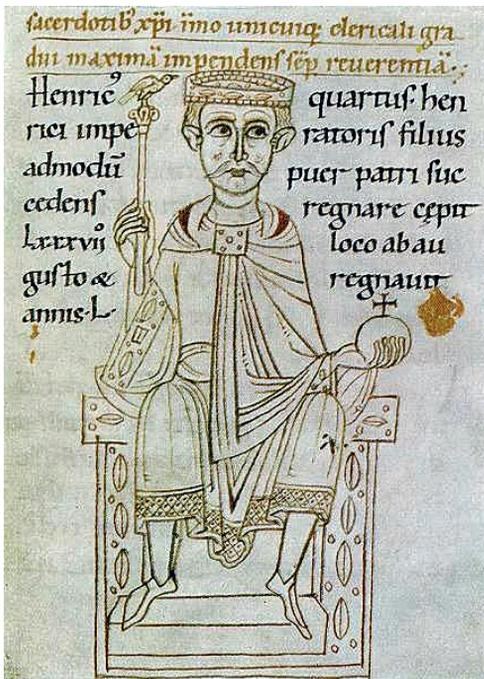 sacerdotib' xp̄i īmo unicuiq; clericali gra
dui maximā impendens sēp reuerentiā.
Henric' quartus. hen
rici impe ratoris filius
admodū puer patri suc
cedens regnare cępit
lxxxvii loco ab au
gusto & regnauit
annis. L.